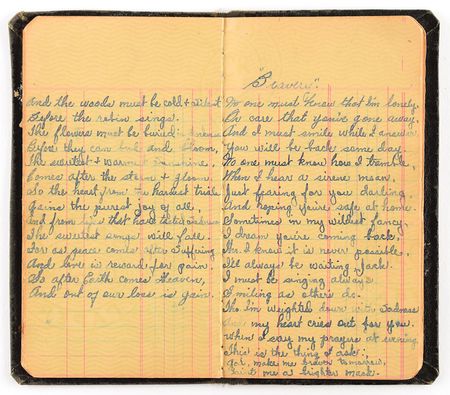 And the woods must be cold + silent
Before the robin sings.
The flowers must be buried in darkness
Before they can bud and bloom,
The sweetest + warmest sunshine,
Comes after the storm + gloom.
So the heart from the hardest trials
Gains the purest joy of all,
And from lips that have tasted sadness
The sweetest songs will fall.
For as peace comes after suffering
And love is reward for pain.
So after Earth comes Heaven,
And out of our loss is gain.
"Bravery".
No one must know that I'm lonely
Or care that you're gone away.
And I must smile while I answer
You will be back some day.
No one must know how I tremble,
When I hear a sirene moan,
Just fearing for you darling
And hoping you're safe at home.
Sometimes in my wildest fancy
I dream you're coming back.
Tho I know it is never possible,
I'll always be waiting Jack.
I must be singing always
Smiling as others do.
Tho I'm weighted down with sadness
And my heart cries out for you.
When I say my prayers at evening
This is the thing I ask;
God, make me braver tomorrow,
Paint me a brighter mask.